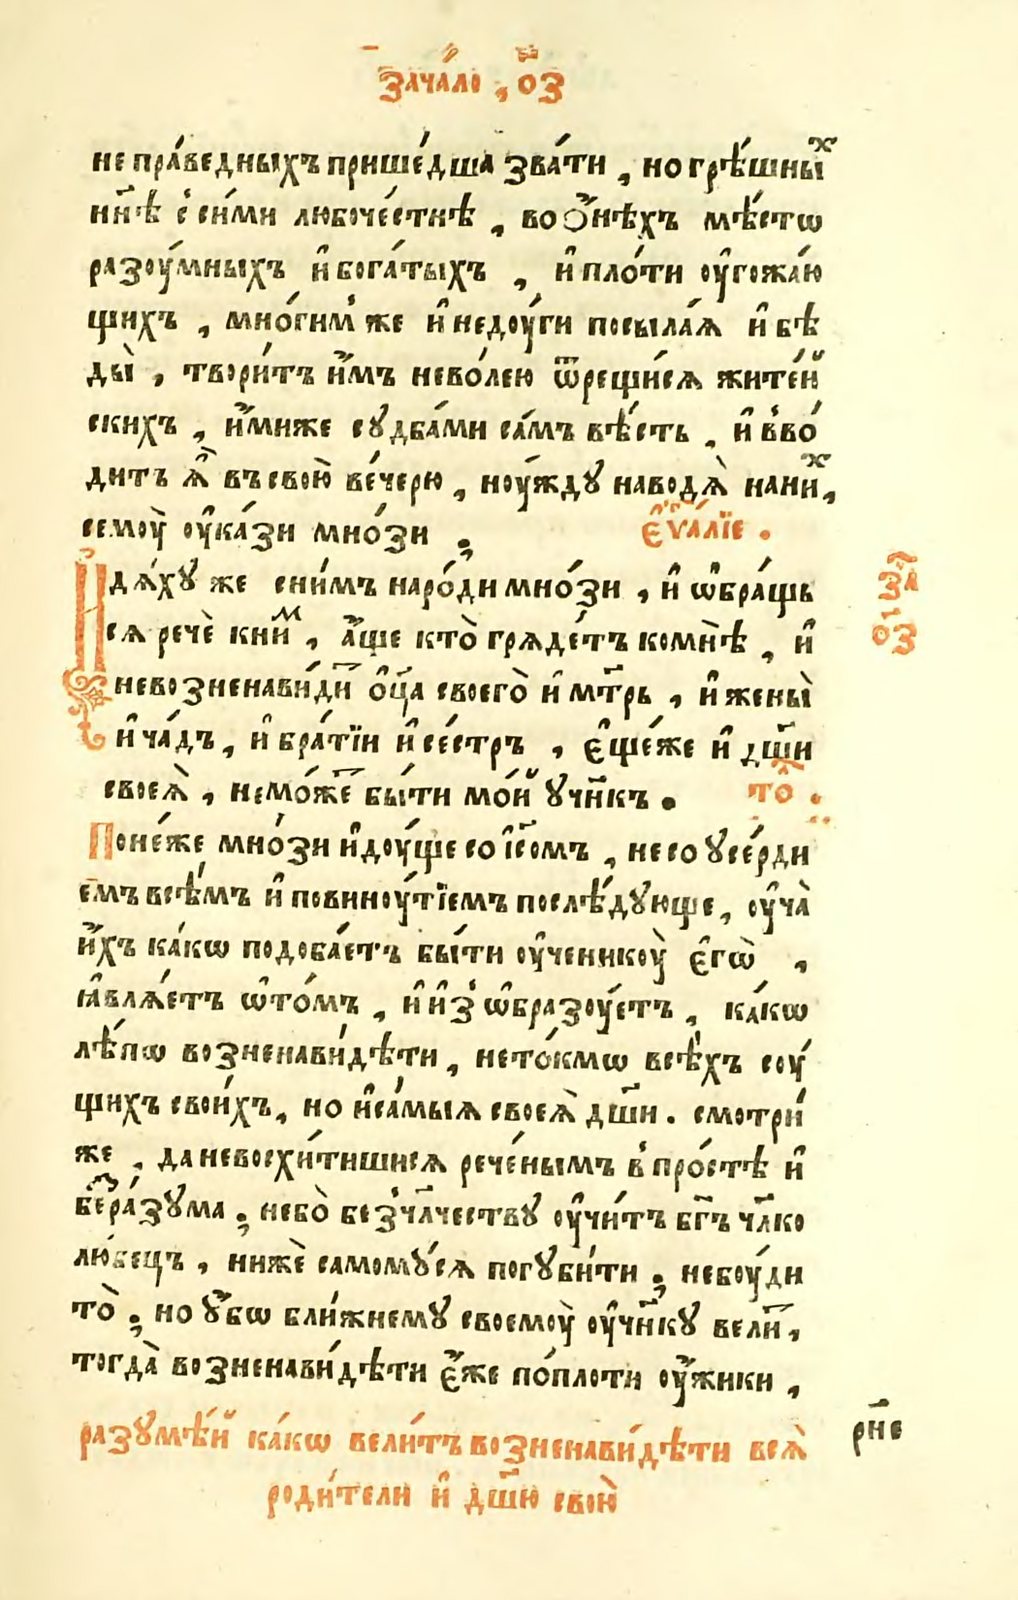 зача́ло , о҃з
не пра́ведныхъ прише́дша зва́ти , но грѣ́шныⷯ
нн҃ѣ с си́ми любоче́стнѣ , во ѻ҆нѣ́хъ мѣ́стѡ
разоу́мныхъ и҆ бога́тыхъ , и҆ пло́ти оу҆гожа́ю
щихъ , мно́гим же и҆ недоу́ги посыла́ѧ и҆ бѣ
ды̀ , твори́тъ и҆̀мъ нево́лею ѿрещи́сѧ жите́й
скихъ , и҆́миже судба́ми са́мъ вѣ́сть , и҆ в во́
дитъ ѧ҆̀ въ свою̀ ве́черю , ноу́жду наводѧ̀ на ниⷯ ,
семоу̀ оу҆ка́зи мно́зи ; є҆ѵⷢ҇а́лїе .
Идѧ́ху же с ни́мъ наро́ди мно́зи , и҆ ѡ҆бра́щь
сѧ речѐ к ни́ⷨ , а҆́ще кто̀ грѧде́тъ ко мнѣ̀ , и҆
не возненави́диⷮ ѻ҆ц҃а̀ своего̀ и҆ мт҃рь , и҆ жены̀
и҆ ча́дъ , и҆ бра́тїи и҆ се́стръ , є҆ще́же и҆ дш҃и
своеѧ̀ , не мо́жеⷮ бы́ти мо́й учн҃къ . то̀ⷧ .
Поне́же мно́зи и҆доу́ще со і҆с҃омъ , не со усе́рди
емъ всѣ́мъ и҆ повиноу́тїемъ послѣ́дующе , оу҆ча̀
и҆́хъ ка́кѡ подоба́етъ бы́ти оу҆ченикоу̀ є҆гѡ̀ ,
ꙗ҆влѧ́етъ ѡ҆ то́мъ , и҆ и҆з ѡ҆бразоу́етъ , ка́кѡ
лѣ́пѡ возненави́дѣти , не то́кмѡ всѣ́хъ соу́
щихъ свои́хъ , но и҆ са́мыѧ своеѧ̀ дш҃и . смотри́
же , да не восхи́тишисѧ рече́нымъ в про́стѣ и҆
беⷥ ра́зума ; не бо̀ безчл҃честву оу҆чи́тъ бг҃ъ чл҃ко
лю́бецъ , нижѐ самомусѧ погуби́ти ; не боу́ди
то̀ ; но у҆́бѡ бли́жнему своемоу̀ оу҆чн҃ку вели́ⷮ ,
тогда̀ возненави́дѣти є҆́же по́плоти оу҆́жики ,
разумѣ́й ка́кѡ вели́тъ возненави́дѣти всѧ̀
роди́тели и҆ дш҃ю свою̀
заⷱ
о҃з
рн҃е